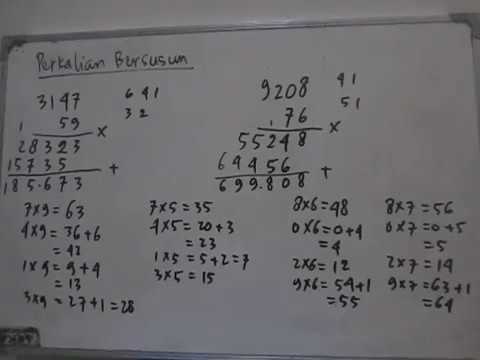 Perkalian Bersusun
3147
59 ×
1
28323
15735 +
185.673
6 4 1
3 2
7×9 = 63
4×9 = 36+6
= 42
1×9 = 9+4
= 13
3×9 = 27+1 = 28
7×5 = 35
4×5 = 20+3
= 23
1×5 = 5+2 = 7
3×5 = 15
9208
76 ×
1
55248
64456 +
699.808
4 1
5 1
8×6 = 48
0×6 = 0+4
= 4
2×6 = 12
9×6 = 54+1
= 55
8×7 = 56
0×7 = 0+5
= 5
2×7 = 14
9×7 = 63+1
= 64